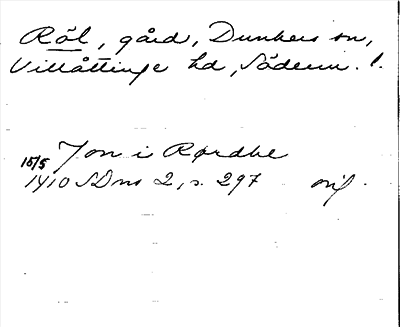 Röl, gård, Dunkers sn,
Villåttinge hd, Söderm. l.
Jon i Rørdhe
15/5 1410 SDns 2, s. 297 orig.